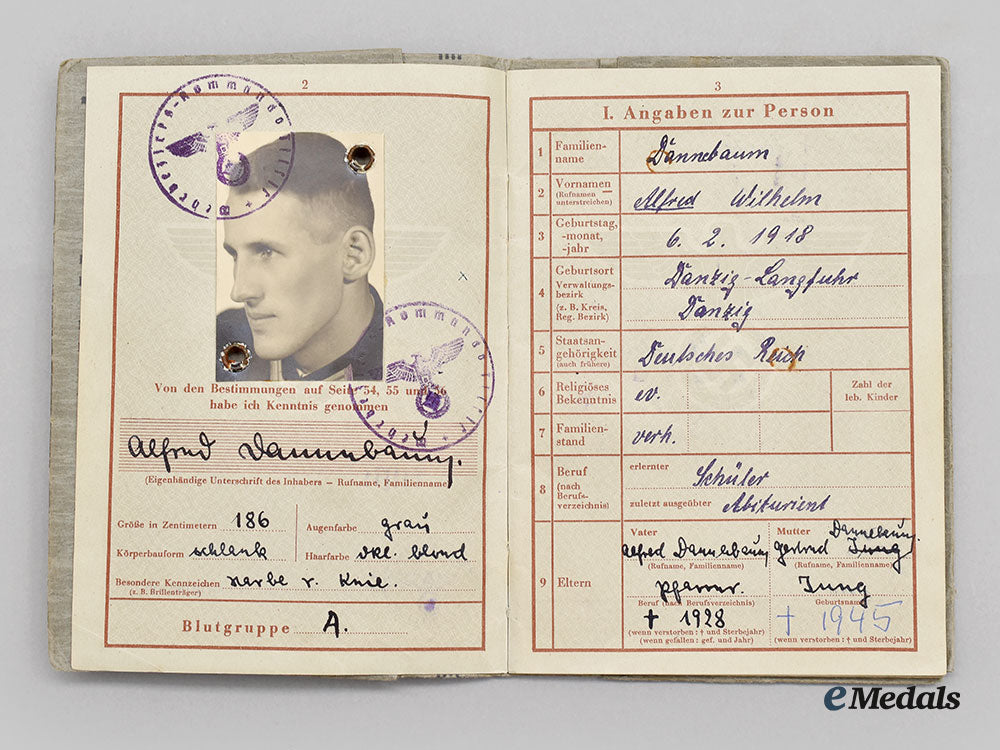 2
Wehrbezirks-Kommando
Von den Bestimmungen auf Seite 54, 55 und 56
habe ich Kenntnis genommen
Alfred Dannebaum.
(Eigenhändige Unterschrift des Inhabers – Rufname, Familienname)
Größe in Zentimetern 186 Augenfarbe grau
Körperbauform schlank Haarfarbe dkl. blond
Besondere Kennzeichen Narbe r. Knie.
(z. B. Brillenträger)
Blutgruppe A.
3
I. Angaben zur Person
1 Familien-
name
Dannebaum
2 Vornamen
(Rufnamen
unterstreichen)
Alfred Wilhelm
3 Geburtstag,
-monat,
-jahr
6. 2. 1918
4 Geburtsort
Verwaltungs-
bezirk
(z. B. Kreis,
Reg. Bezirk)
Danzig-Langfuhr
Danzig
5 Staatsan-
gehörigkeit
(auch frühere)
Deutsches Reich
6 Religiöses
Bekenntnis
ev.
Zahl der
leb. Kinder
7 Familien-
stand
verh.
8 Beruf
(nach
Berufs-
verzeichnis)
erlernter Schüler
zuletzt ausgeübter Abiturient
9 Eltern
Vater
Alfred Dannebaum
(Rufname, Familienname)
Pfarrer.
Beruf (nach Berufsverzeichnis)
† 1928
(wenn verstorben: † und Sterbejahr)
(wenn gefallen: gef. und Jahr)
Mutter Dannebaum.
Gertrud Jung
(Rufname, Familienname)
Jung
Geburtsname
† 1945
(wenn verstorben: † und Sterbejahr)
eMedals